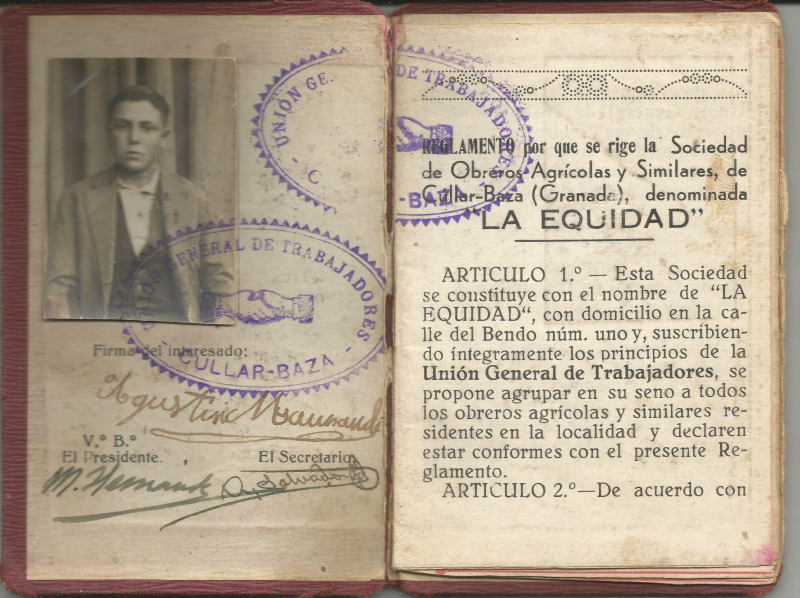 UNIÓN GENERAL DE TRABAJADORES
- CULLAR-BAZA -
Firma del interesado:
Agustin
V.º B.º
El Presidente.
El Secretario,
M. Hernandz
Salvador
UNIÓN GE
DE TRABAJADORES
- C
-BAZA -
REGLAMENTO por que se rige la Sociedad
de Obreros Agrícolas y Similares, de
Cullar-Baza (Granada), denominada
"LA EQUIDAD"
ARTICULO 1.º — Esta Sociedad
se constituye con el nombre de "LA
EQUIDAD", con domicilio en la ca-
lle del Bendo núm. uno y, suscribien-
do íntegramente los principios de la
Unión General de Trabajadores, se
propone agrupar en su seno a todos
los obreros agrícolas y similares re-
sidentes en la localidad y declaren
estar conformes con el presente Re-
glamento.
ARTICULO 2.º—De acuerdo con